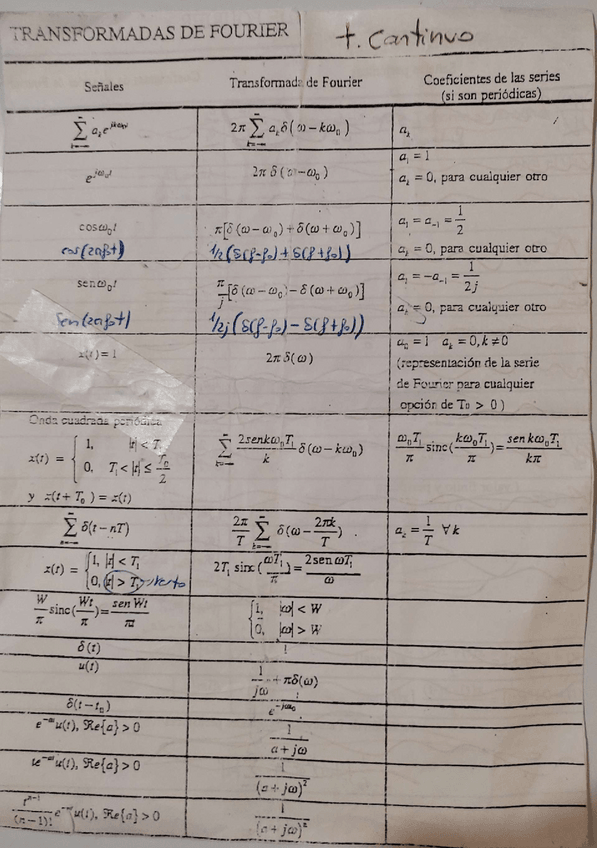 TRANSFORMADAS DE FOURIER t. Continuo
Señales Transformada de Fourier Coeficientes de las series
(si son periódicas)
∑_{k=-∞}^{∞} a_k e^{jkω₀t} 2π ∑_{k=-∞}^{∞} a_k δ(ω-kω₀) a_k
e^{jω₀t} 2π δ(ω-ω₀) a₁ = 1
a_k = 0, para cualquier otro
cosω₀t π[δ(ω-ω₀)+δ(ω+ω₀)] a₁ = a₋₁ = 1/2
cos(2πf₀t) 1/2(δ(f-f₀)+δ(f+f₀)) a_k = 0, para cualquier otro
senω₀t π/j[δ(ω-ω₀)-δ(ω+ω₀)] a₁ = -a₋₁ = 1/2j
Sen(2πf₀t) 1/2j(δ(f-f₀)-δ(f+f₀)) a_k = 0, para cualquier otro
x(t)=1 2π δ(ω) a₀ = 1 a_k = 0, k ≠ 0
(representación de la serie
de Fourier para cualquier
opción de T₀ > 0)
Onda cuadrada periódica
x(t) = { 1, |t| < T₁ ∑_{k=-∞}^{∞} 2senkω₀T₁/k δ(ω-kω₀) ω₀T₁/π sinc(kω₀T₁/π)=sen kω₀T₁/kπ
0. T₁<|t|≤T₀/2
y x(t+T₀)=x(t)
∑_{n=-∞}^{∞} δ(t-nT) 2π/T ∑_{k=-∞}^{∞} δ(ω-2πk/T) a_k = 1/T ∀ k
x(t) = {1, |t| < T₁ 2T₁ sinc(ωT₁/π)=2senωT₁/ω
0, |t| > T₁
W/π sinc(Wt/π)=sen Wt/πt {1, |ω| < W
0, |ω| > W
δ(t) 1
u(t) 1/jω + πδ(ω)
δ(t-t₀) e^{-jωt₀}
e^{-at}u(t), ℜe{a}>0 1/a+jω
te^{-at}u(t), ℜe{a}>0 1/(a+jω)²
t^{n-1}/(n-1)! e^{-at}u(t), ℜe{a}>0 1/(a+jω)ⁿ